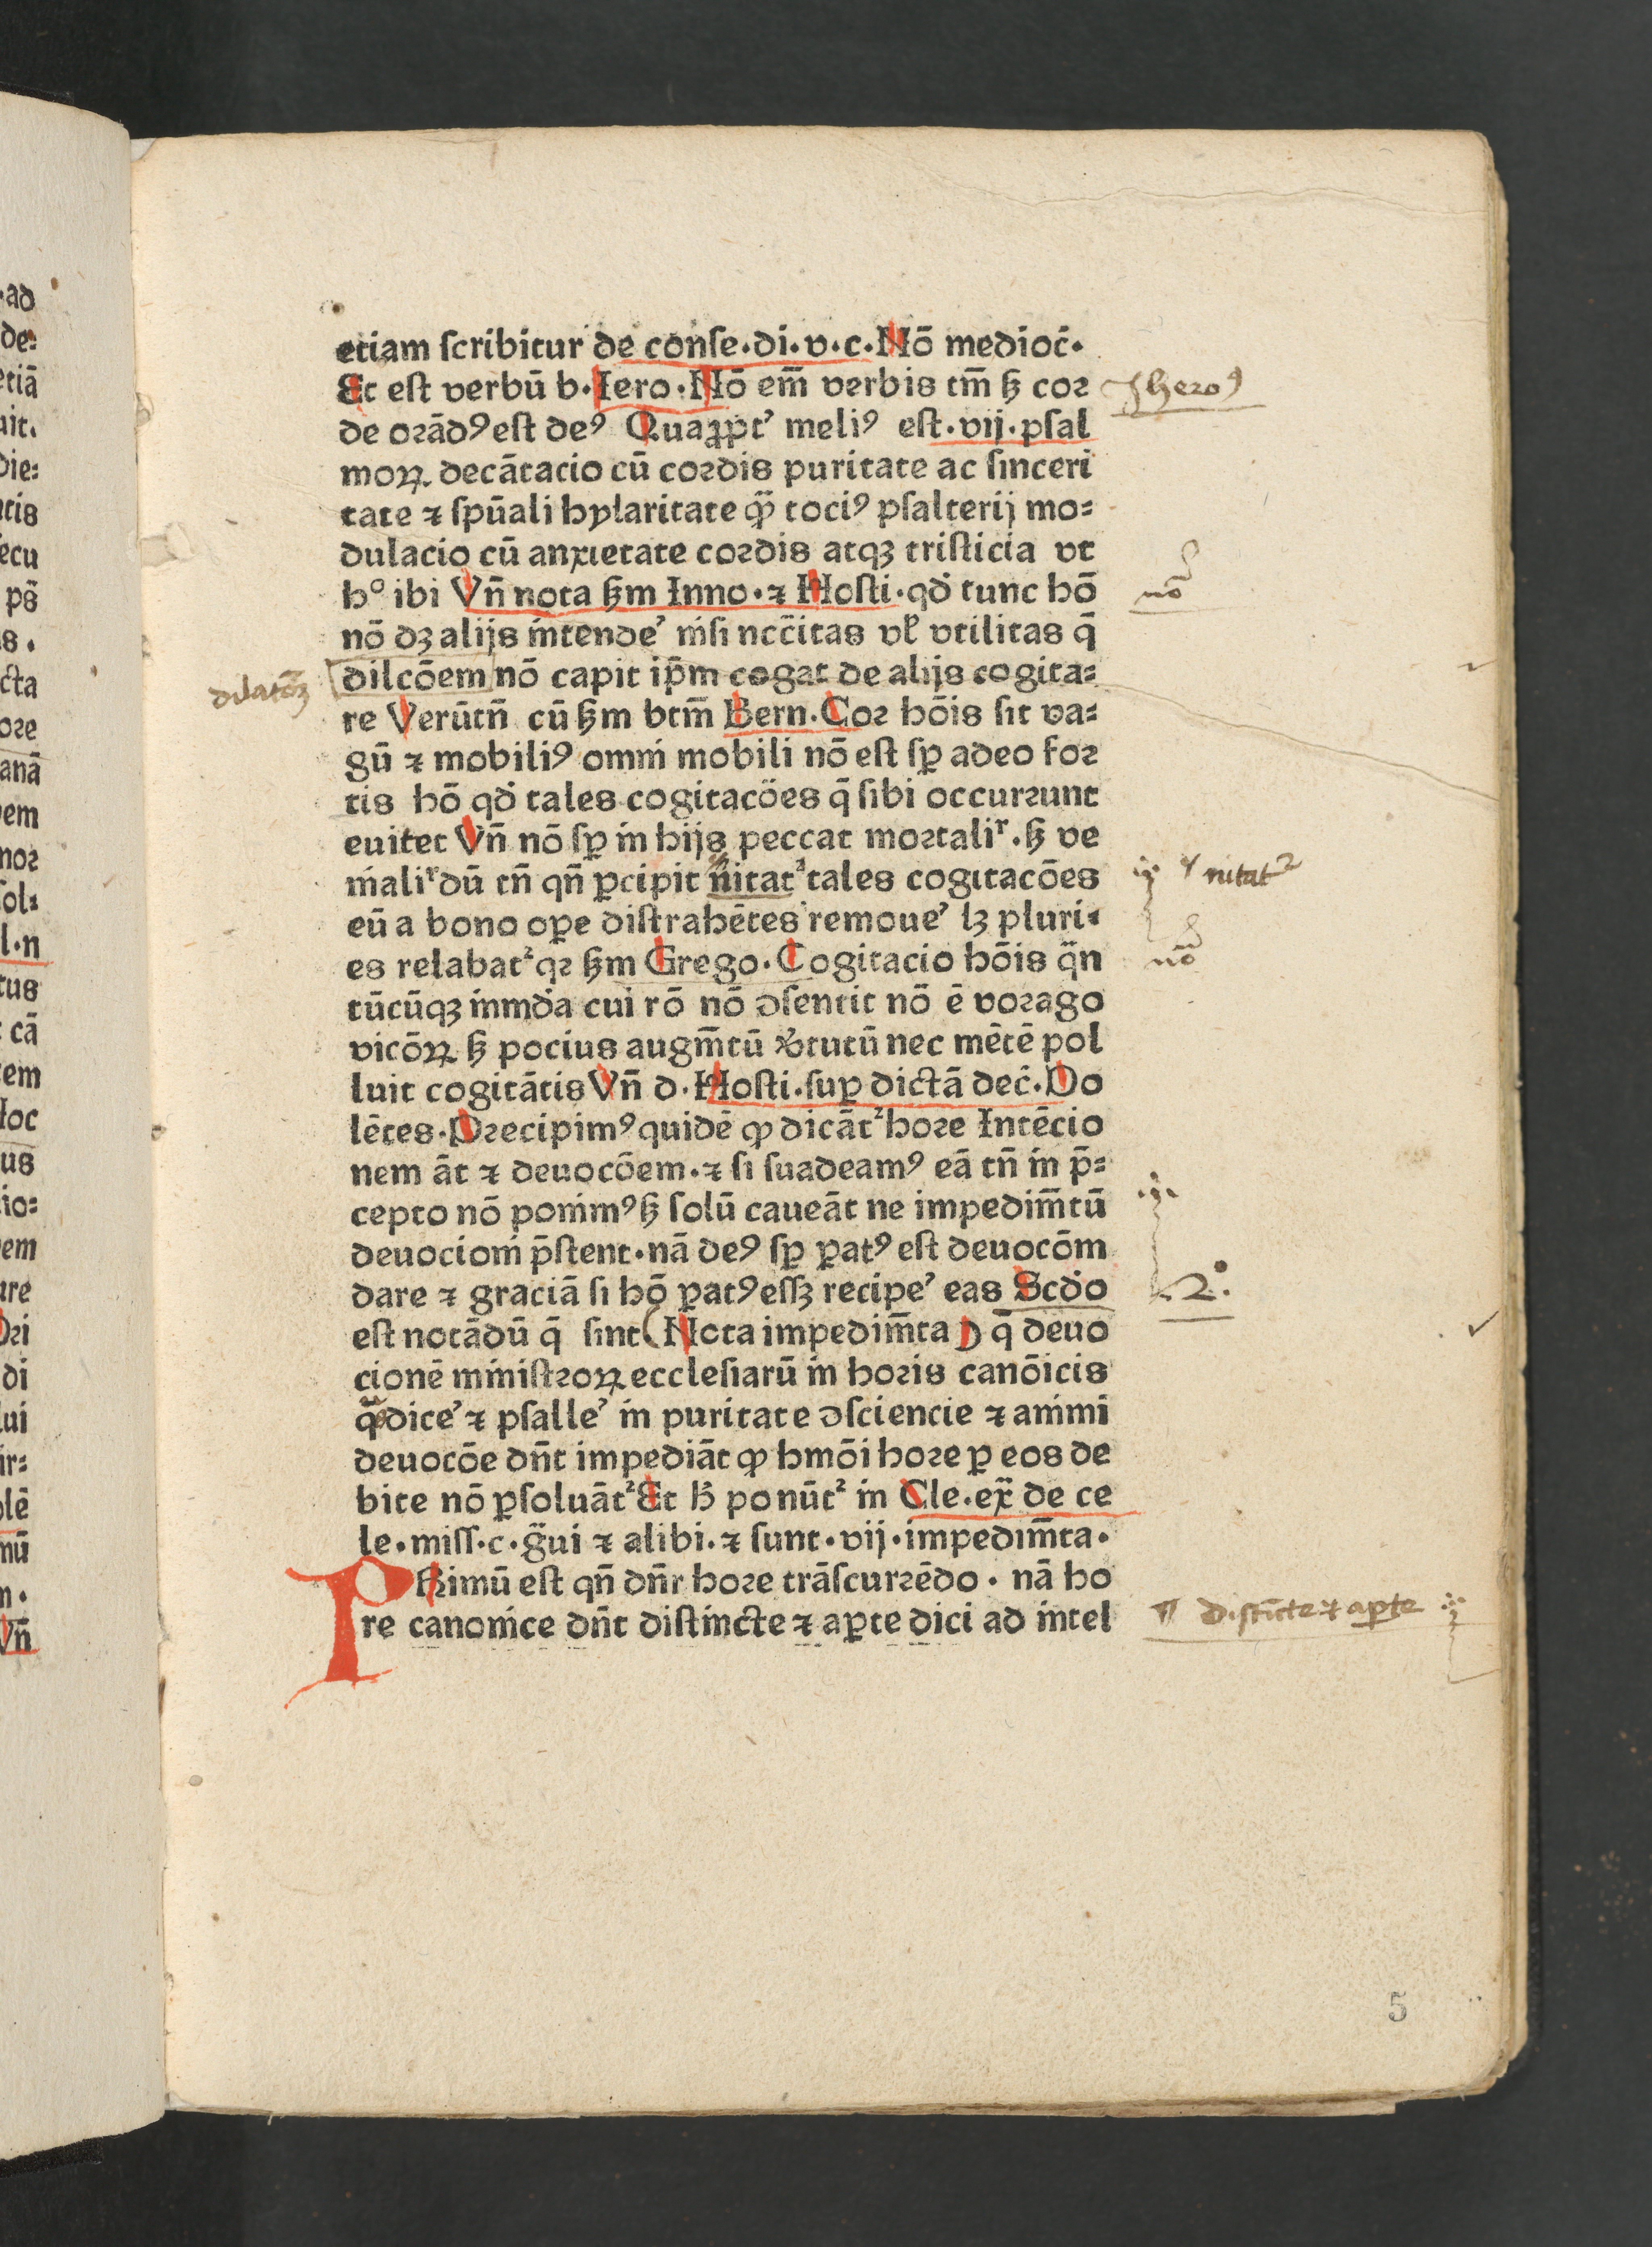 etiam ſcribitur de conſe·di·v·c·Nō medioc̄·
Et eſt verbū b·Iero·Nō em̄ verbis tm̄ ſꝫ cor
Jheroꝰ
de orādꝰ eſt deꝰ Quaꝓpt’ meliꝰ eſt·vij·pſal
moꝝ decātacio cū cordis puritate ac ſinceri
tate ⁊ ſpūali hylaritate qͣꝫ tociꝰ pſalterij mo⸗
dulacio cū anxietate cordis atqꝫ triſticia vt
hº ibi Vn̄ nota ẜm Inno·⁊ Hoſti·qđ tunc hō
nō
nō dꝫ alijs intende’ niſi ncc̄itas vƚ vtilitas q̄
dilcōem nō capit ip̄m cogat de alijs cogita⸗
dilatōꝫ
re Verūtn̄ cū ẜm btm̄ Bern·Cor hōis ſit va⸗
gū ⁊ mobiliꝰ omni mobili nō eſt ſꝑ adeo for
tis hō qđ tales cogitacōes q̄ ſibi occurrunt
euitet Vn̄ nō ſꝑ in hijs peccat mortaliʳ·ſꝫ ve
nialiʳ dū tn̄ qn̄ ꝑcipit nitat᷑ tales cogitacōes
nitat᷑
eū a bono oꝑe diſtrahētes remoue’ lꝫ pluri⸗
es relabat᷑ qꝛ ẜm Grego·Cogitacio hōis qͣn
nō
tūcūqꝫ inmđa cui rō nō ↄſentit nō ē vorago
vicōꝝ ſꝫ pocius augm̄tū v̓tutū nec mētē pol
luit cogitātis Vn̄ d·Hoſti·ſuꝑ dictā dec̄·Do
lētes·Precipimꝰ quidē ꝙ dicāt᷑ hore Intēcio
nem āt ⁊ deuocōem·⁊ ſi ſuadeamꝰ eā tn̄ in p̄⸗
cepto nō ponimꝰ ſꝫ ſolū caueāt ne impedim̄tū
deuocioni p̄ſtent·nā deꝰ ſꝑ ꝑatꝰ eſt deuocōm
dare ⁊ graciā ſi hō ꝑatꝰ eſſꝫ recipe’ eas Scđo
2·
eſt notādū q̄ ſint (Nota impedim̄ta) q̄ deuo
cionē miniſtroꝝ eccleſiarū in horis canōicis
qͣs dice’ ⁊ pſalle’ in puritate ↄſciencie ⁊ animi
deuocōe dn̄t impediāt ꝙ hmōi hore ꝑ eos de
bite nō ꝑſoluāt᷑ Et ħ ponūt᷑ in Cle·ex̄ de ce
le·miſſ·c·gͣui ⁊ alibi·⁊ ſunt·vij·impedim̄ta·
PRimū eſt qn̄ dn̄r hore trāſcurrēdo·nā ho
re canonice dn̄t diſtincte ⁊ aꝑte dici ad intel
¶ d·ſtīcte ⁊ aꝑte
5